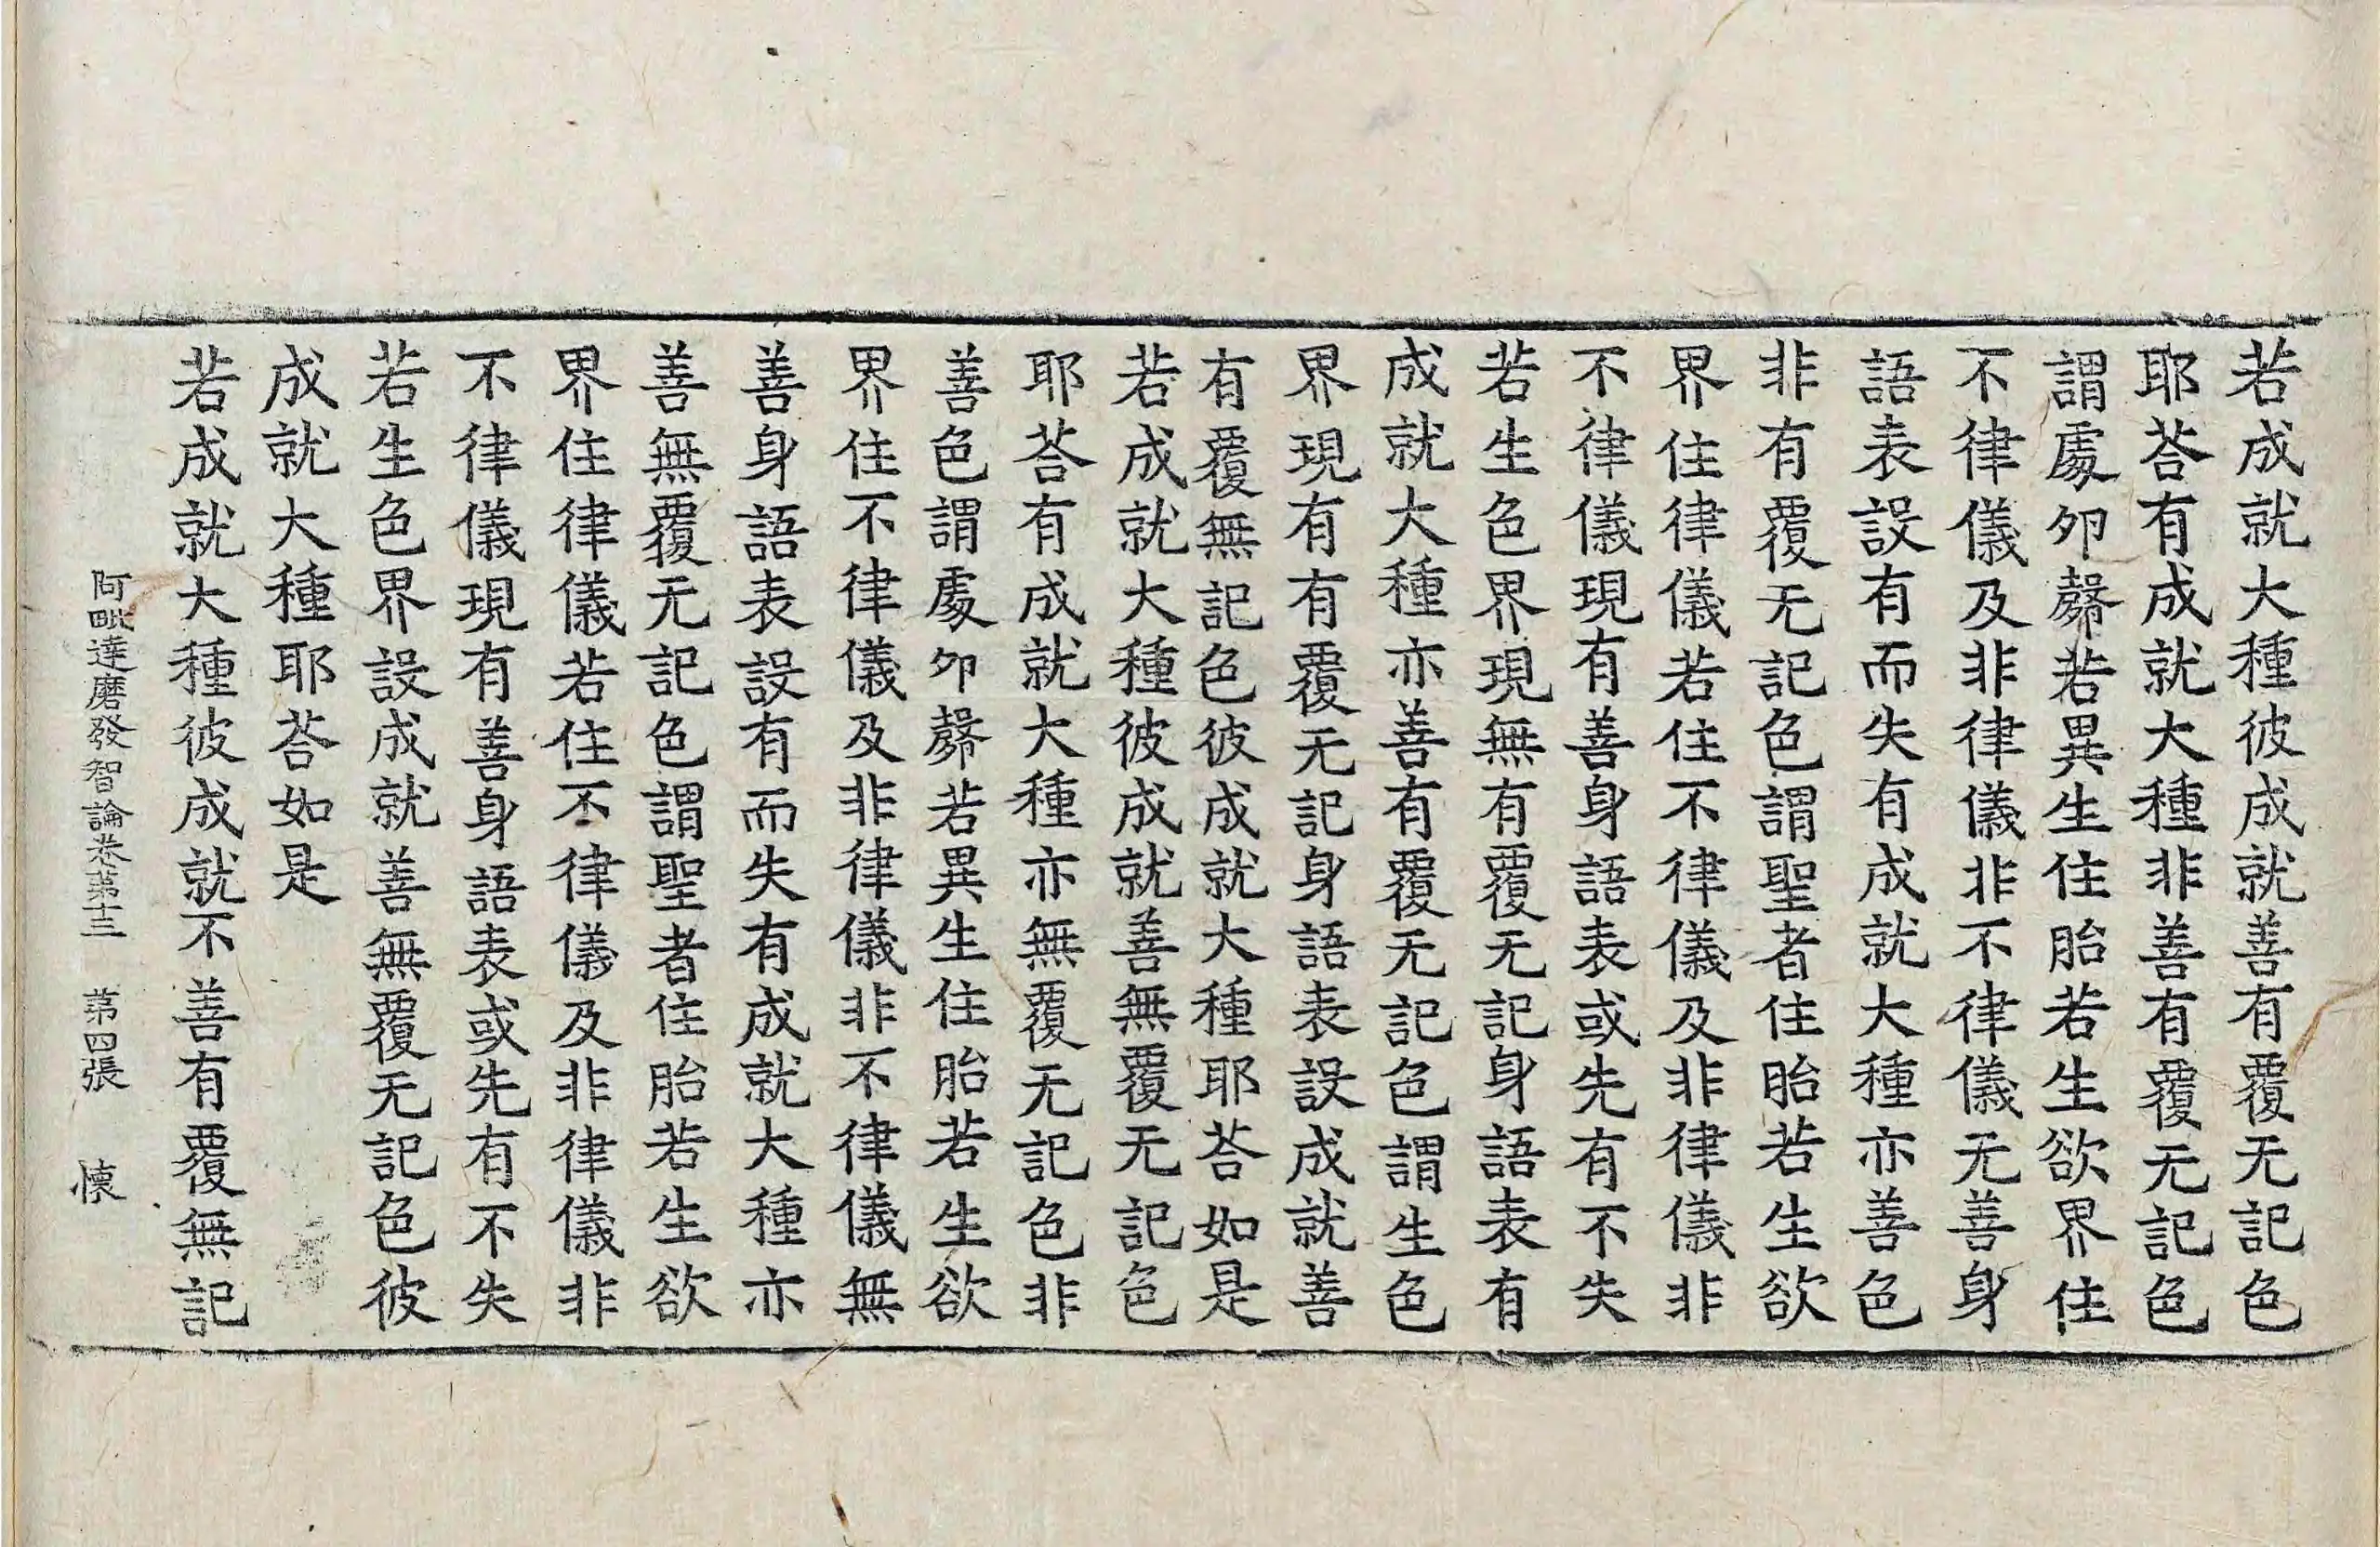 若成就大種彼成就善有覆无記色
耶荅有成就大種非善有覆无記色
謂處夘㲉若異生住胎若生欲界住
不律儀及非律儀非不律儀无善身
語表設有而失有成就大種亦善色
非有覆无記色謂聖者住胎若生欲
界住律儀若住不律儀及非律儀非
不律儀現有善身語表或先有不失
若生色界現無有覆无記身語表有
成就大種亦善有覆无記色謂生色
界現有有覆无記身語表設成就善
有覆無記色彼成就大種耶荅如是
若成就大種彼成就善無覆无記色
耶荅有成就大種亦無覆无記色非
善色謂處夘㲉若異生住胎若生欲
界住不律儀及非律儀非不律儀無
善身語表設有而失有成就大種亦
善無覆无記色謂聖者住胎若生欲
界住律儀若住不律儀及非律儀非
不律儀現有善身語表或先有不失
若生色界設成就善無覆无記色彼
成就大種耶荅如是
若成就大種彼成就不善有覆無記
阿毗達磨發智論卷第十三 第四張 懐